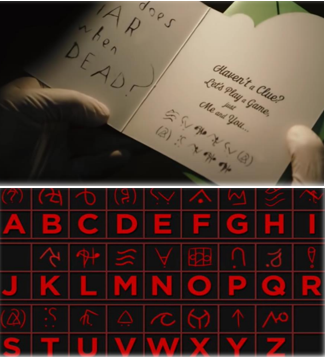 does
IAR
when
DEAD?
Haven't a Clue?
Let's Play a Game,
just
Me and You...
A B C D E F G H I
J K L M N O P Q R
S T U V W X Y Z